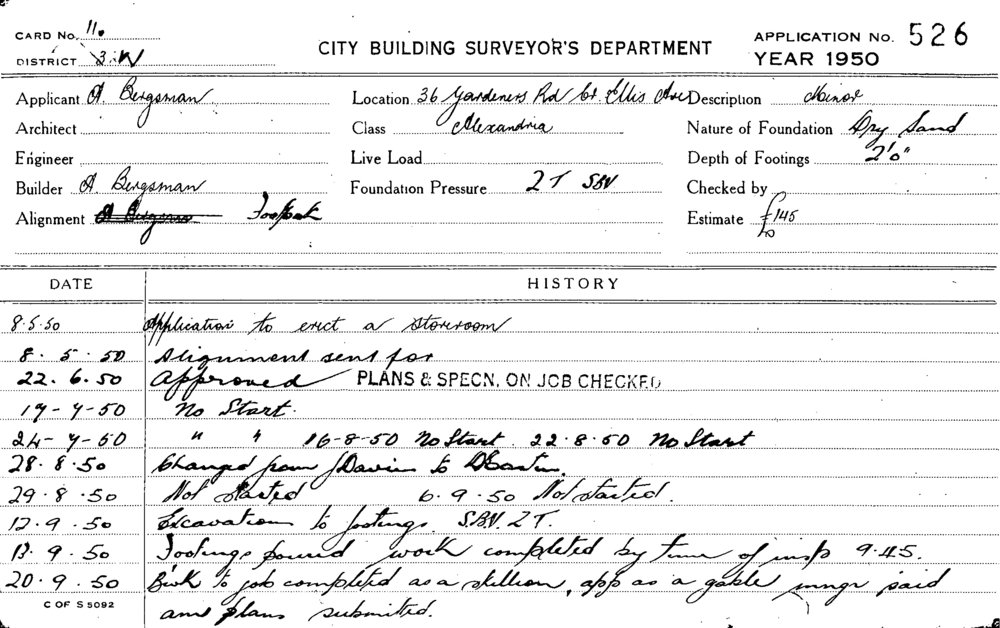 CARD NO. 11.
DISTRICT 3.W
CITY BUILDING SURVEYOR'S DEPARTMENT
APPLICATION NO. 526
YEAR 1950
Applicant A. Bergsman Location 36 Gardeners Rd Cr. Ellis Ave Description Minor
Architect Class Alexandria Nature of Foundation Dry Sand
Engineer Live Load Depth of Footings 2'0"
Builder A. Bergsman Foundation Pressure 2T SBV Checked by
Alignment Footpath Estimate £145
DATE HISTORY
8.5.50 Application to erect a storeroom
8.5.50 Alignment sent for
22.6.50 Approved PLANS & SPECN. ON JOB CHECKED
19-7-50 No Start.
24-7-50 " " 16-8-50 No Start 22.8.50 No Start
28.8.50 Changed from to
29.8.50 Not started 6.9.50 Not started.
12.9.50 Excavation to footings. S.B.V. 2T.
13.9.50 Footings poured work completed by time of insp 9.45.
20.9.50 to job completed as a skillion, app as a gable said
and plans submitted.
C OF S 5092